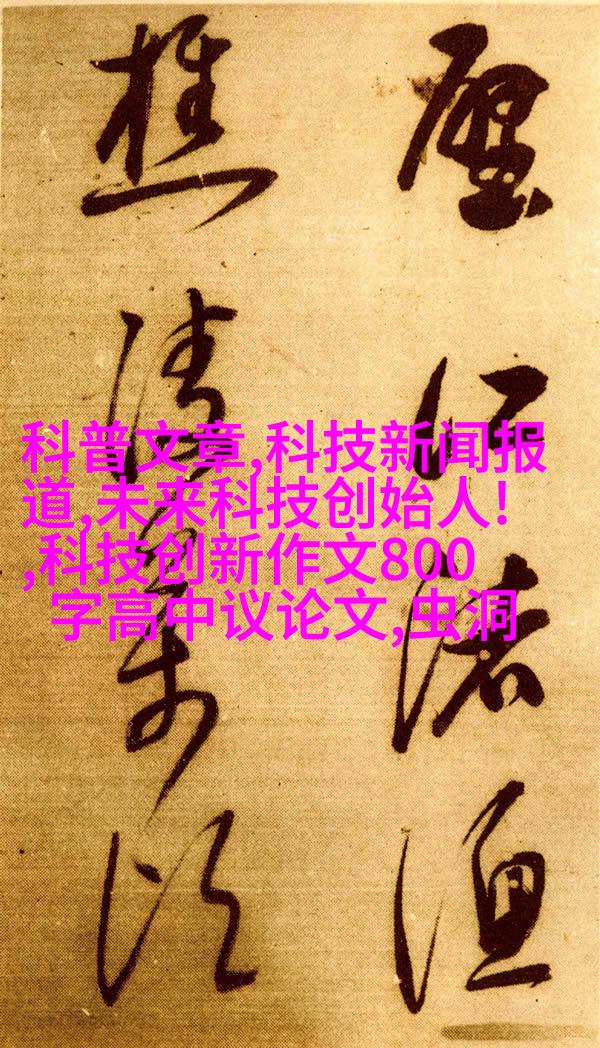 江渚漁
樵清萬頃
科普文章,科技新闻报
道,未来科技创始人!
,科技创新作文800
字高中议论文,虫洞